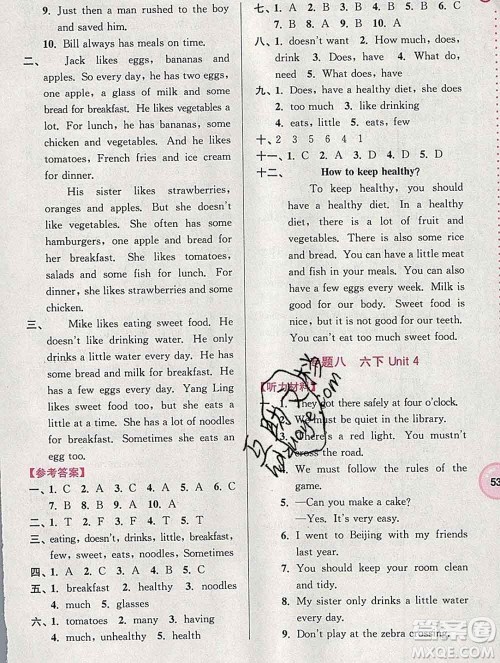 9. Just then a man rushed to the boy
and saved him.
10. Bill always has meals on time.
二、 Jack likes eggs, bananas and
apples. So every day, he has two eggs,
one apple, a glass of milk and some
bread for breakfast. He likes vegetables a
lot. For lunch, he has bananas, some
chicken and vegetables. And he likes
tomatoes, French fries and ice cream
for dinner.
His sister likes strawberries,
oranges and apples. But she doesn't
like vegetables. For breakfast, she has
some bread and eggs. She often has
hamburgers, one apple and a banana
for lunch. She likes tomatoes,
salads and some fish for dinner. She
always has strawberries and some
chicken.
三、 Mike likes eating sweet food. He
doesn't like drinking water, he only
drinks a little water every day. He
doesn't like vegetables, but he eats a
few eggs every day. Yang Ling
likes sweet food too, but she eats a
little at a time. She also has some
noodles for breakfast. Sometimes she
eats a lot of rice. She eats an
egg too.
【参考答案】
一、1. C 2. A 3. A 4. B 5. C 6. C
7. B 8. B 9. A 10. A
二、1. T 2. F 3. F 4. T 5. T
三、eating, doesn't, drinks, little, breakfast,
few, sweet, eats, noodles, Sometimes
四、1. A 2. C 3. B 4. A 5. C
五、1. breakfast 2. healthy 3. noodles
4. much 5. glasses
六、1. tomatoes 2. many 3. having
4. much, unhealthy 5. health
七、1. C 2. A 3. C 4. B 5. C
6. A 7. B 8. B 9. A 10. A
八、1. doesn't want 2. How much, does,
drink 3. Does, have 4. Does, need
5. What does, have
九、1. Does, have a healthy diet, she does
2. too much 3. like drinking
4. eats, little 5. eats, a few
十、2 3 5 6 4 1
十一、1. D 2. A 3. D 4. D 5. A
十二、 How to keep healthy?
To keep healthy, you should
have a healthy diet. In a healthy
diet, there is a lot of fruit and
vegetables. There is not too much
meat and fish in your meals. You can
have a few eggs every week. Milk is
good for you. Sweet food is
nice, but it is not good for your body.
You can't eat too much sweet food.
专题八 六下 Unit 4
【听力材料】
1. They got there safely at four o'clock.
2. We must be quiet in the library.
3. There's a red light. You mustn't
cross the road.
4. We must follow the rules of the
game.
5. —Can you make a cake?
—Yes. It's very easy.
6. I went to Beijing with my friends
last year.
7. You should keep your room clean
and tidy.
8. My sister only drinks a little water
every day.
9. Don't play at the zebra crossing.
53
互助文档
hdzuoye.com
答案圈
MXQE.COM